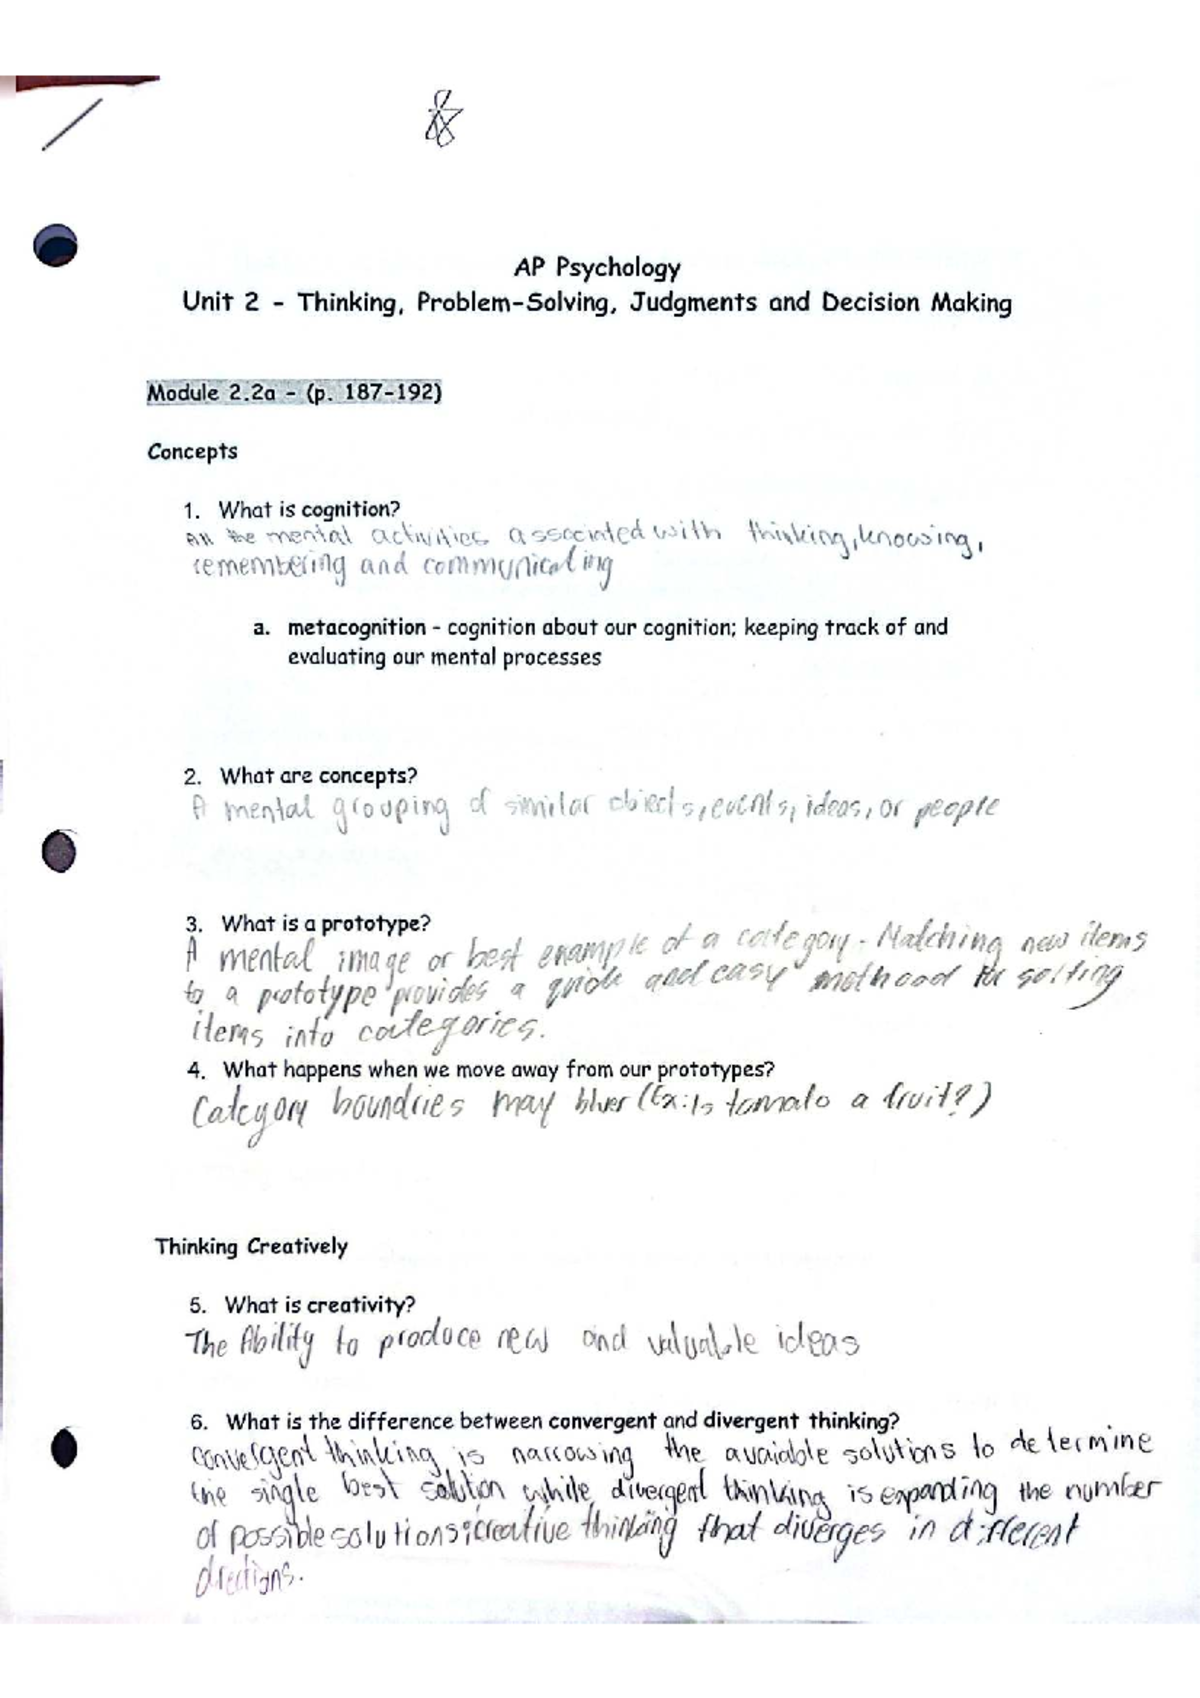 AP Psychology
Unit 2 - Thinking, Problem-Solving, Judgments and Decision Making
Module 2.2a - (p. 187-192)
Concepts
1. What is cognition?
All the mental activities associated with thinking, knowing,
remembering and communicating
a. metacognition - cognition about our cognition; keeping track of and
evaluating our mental processes
2. What are concepts?
A mental grouping of similar objects, events, ideas, or people
3. What is a prototype?
A mental image or best example of a category. Matching new items
to a prototype provides a quick and easy methood for sorting
items into categories.
4. What happens when we move away from our prototypes?
Category boundries may blur (Ex: Is tomato a fruit?)
Thinking Creatively
5. What is creativity?
The Ability to produce new and valuable ideas
6. What is the difference between convergent and divergent thinking?
convergent thinking is narrowing the avaiable solutions to determine
the single best solution while divergent thinking is expanding the number
of possible solutions; creative thinking that diverges in different
directions.